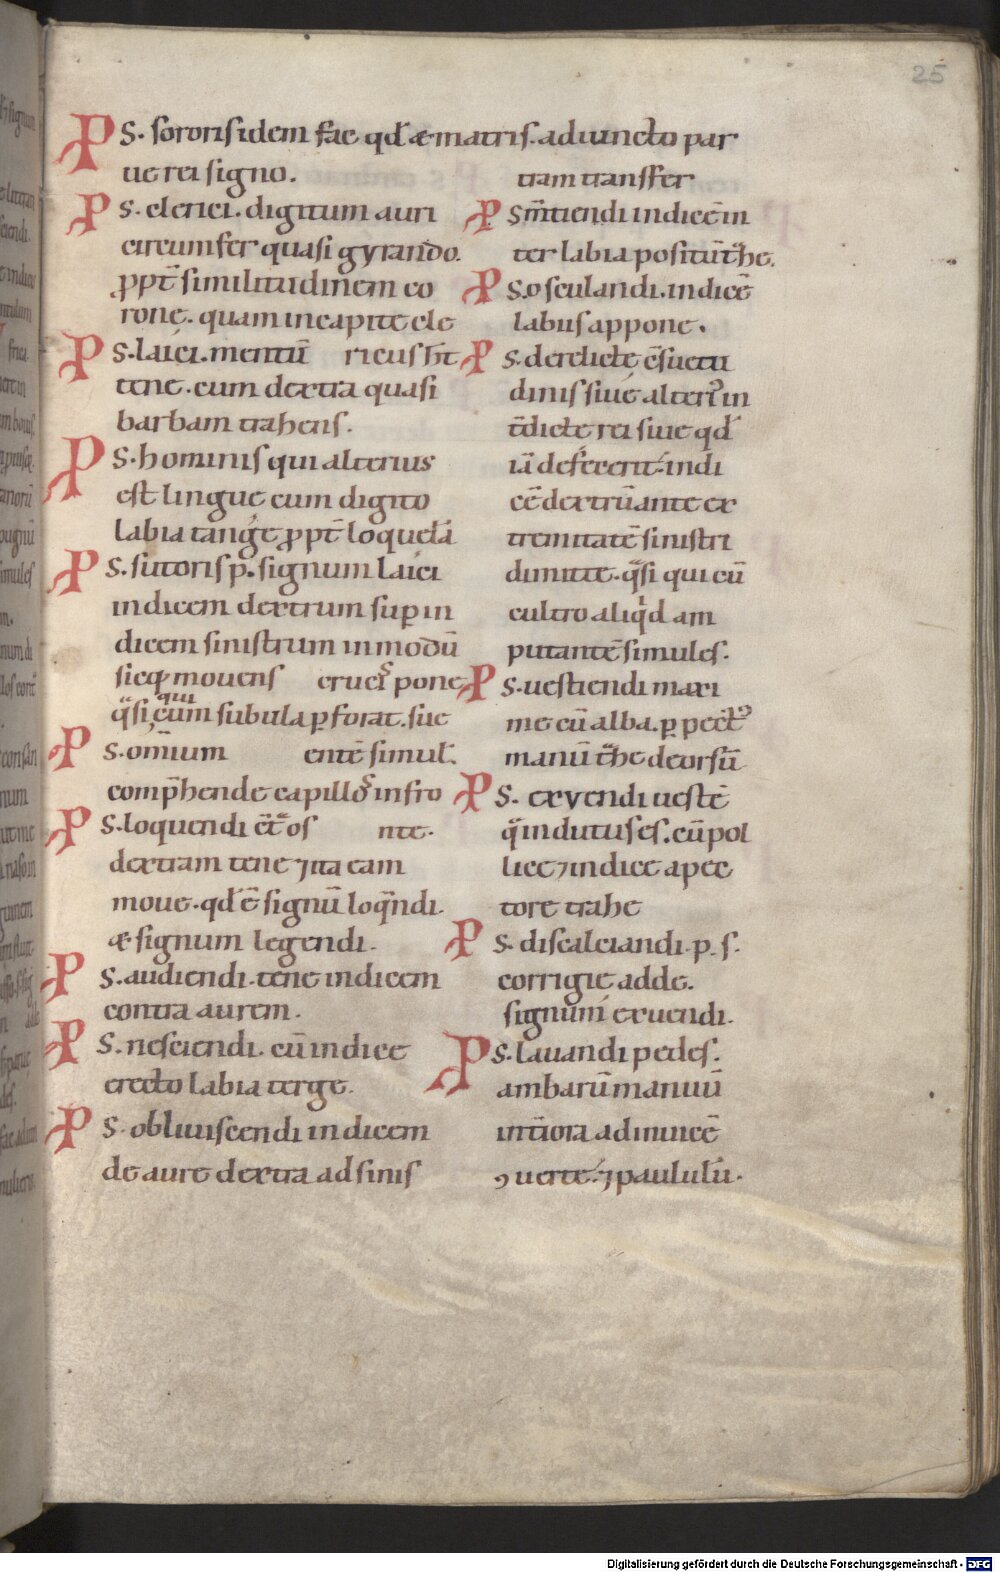 25
P S. sororis idem fac qđ & matris. adiuncto par
ue rei signo.
P S. clerici. digitum auri
circumfer quasi gyrando.
ꝓpt̄ similitudinem co
rone. quam in capite cle
P S. laici. mentū ricus h̄t
tene. cum dextra quasi
barbam trahens.
P S. hominis qui alterius
est lingue cum digito
labia tange ꝓpt̄ loquelā
P S. sutoris p. signum laici
indicem dextrum suꝑ in
dicem sinistrum in modū
sicq; mouens crucis pone
qͣsi qui cum subula ꝑforat. sue
P S. omnium entē simul.
comp̄hende capillos in fro
P S. loquendi cͣtͣ os nte.
dextram tene ⁊ ita eam
moue. qđ ē signū loqͣndi.
& signum legendi.
P S. audiendi. tene indicem
contra aurem.
P S. nesciendi. cū indice
erecto labia terge.
P S. obliuiscendi indicem
de aure dextra ad sinis
tram transfer
P S m̄tiendi indicē in
ter labia positū tͣhe.
P S. osculandi. indicē
labiis appone.
P S. derelicte ꝯsuetu
dinis siue alteriꝰ in
t̄dicte rei siue qđ
iā deferertͥ. indi
cē dextrū ante ex
tremitatē sinistri
dimitte. qͣsi qui cū
cultro aliqͥd am
putantē simules.
P S. uestiendi maxi
me cū alba. ꝑ pectꝰ
manū tͣhe deorsū
P S. exuendi uestē
qͣ indutus es. cū pol
lice ⁊ indice a pec
tore trahe
P S. discalciandi. p. s.
corrigie adde.
signum exuendi.
P S. lauandi pedes.
ambarū manuū
int̄iora adinuicē
ꝯuerte. ⁊ paululū.
Digitalisierung gefördert durch die Deutsche Forschungsgemeinschaft - DFG